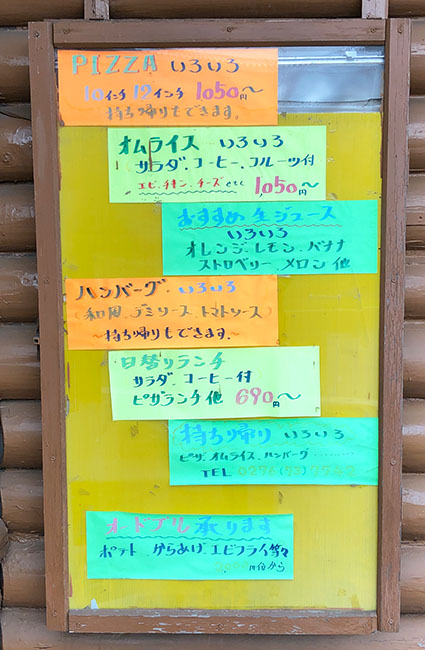 PIZZA いろいろ
10インチ 12インチ 1050円〜
持ち帰りもできます。
オムライス いろいろ
サラダ、コーヒー、フルーツ付
エビ、チキン、チーズ etc 1,050円〜
おすすめ 生ジュース
いろいろ
オレンジ、レモン、バナナ
ストロベリー、メロン 他
ハンバーグ、いろいろ
(和風、デミソース、トマトソース)
〜持ち帰りもできます。〜
日替りランチ
サラダ、コーヒー付
ピザランチ他 690円〜
持ち帰り いろいろ
ピザ、オムライス、ハンバーグ………
TEL 0276
オードブル 承ります
ポテト、からあげ、エビフライ等々
円位から